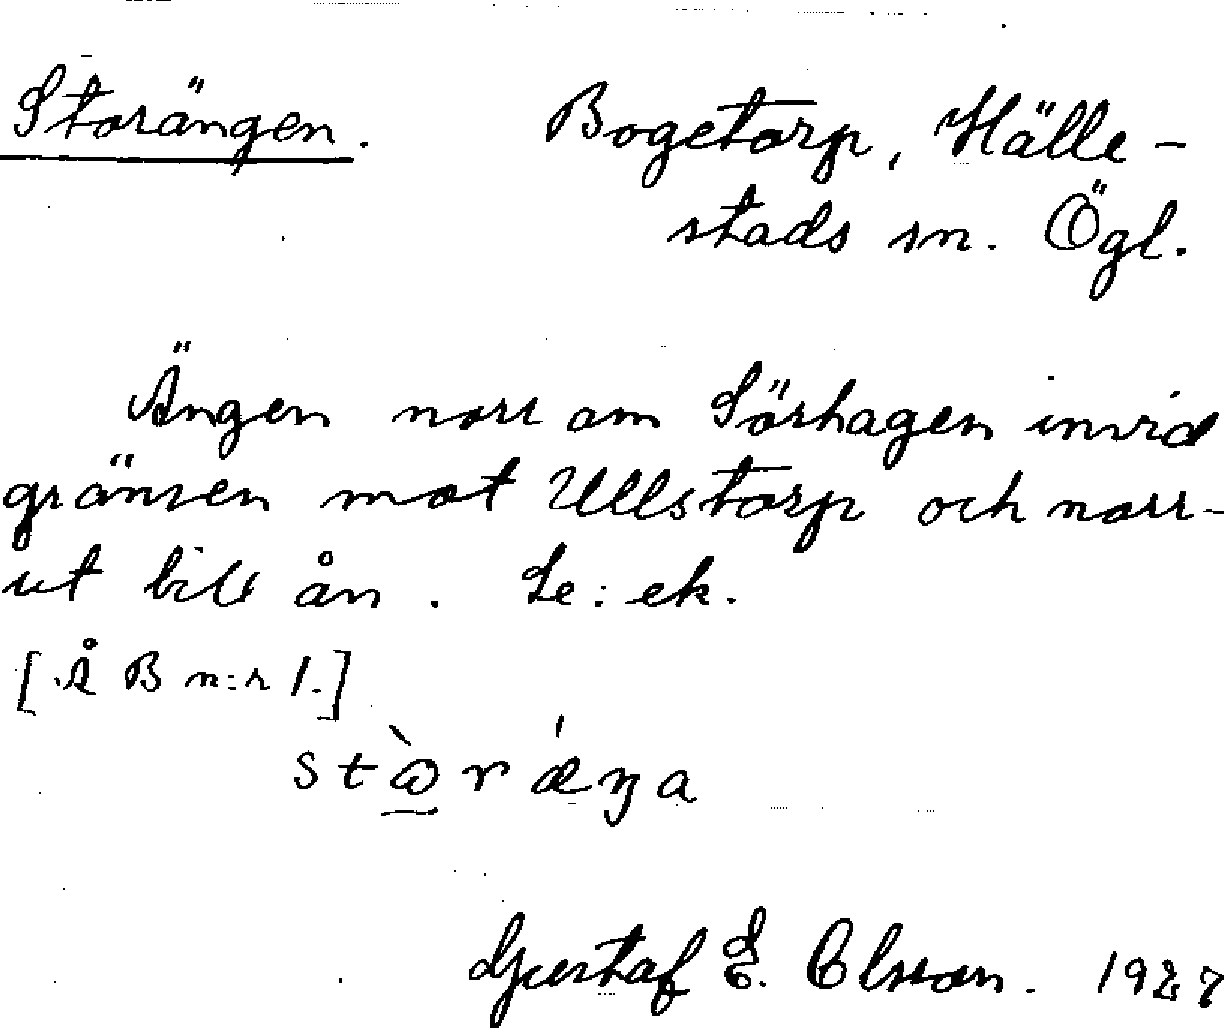 Storängen. Bogetorp, Hälle-
stads sn. Ögl.
Ängen norr om Sörhagen invid
gränsen mot Ullstorp och norr-
ut till ån. Se: ek.
[Å B n:r 1.]
stὼrǽŋa
Gustaf E. Olsson. 1927